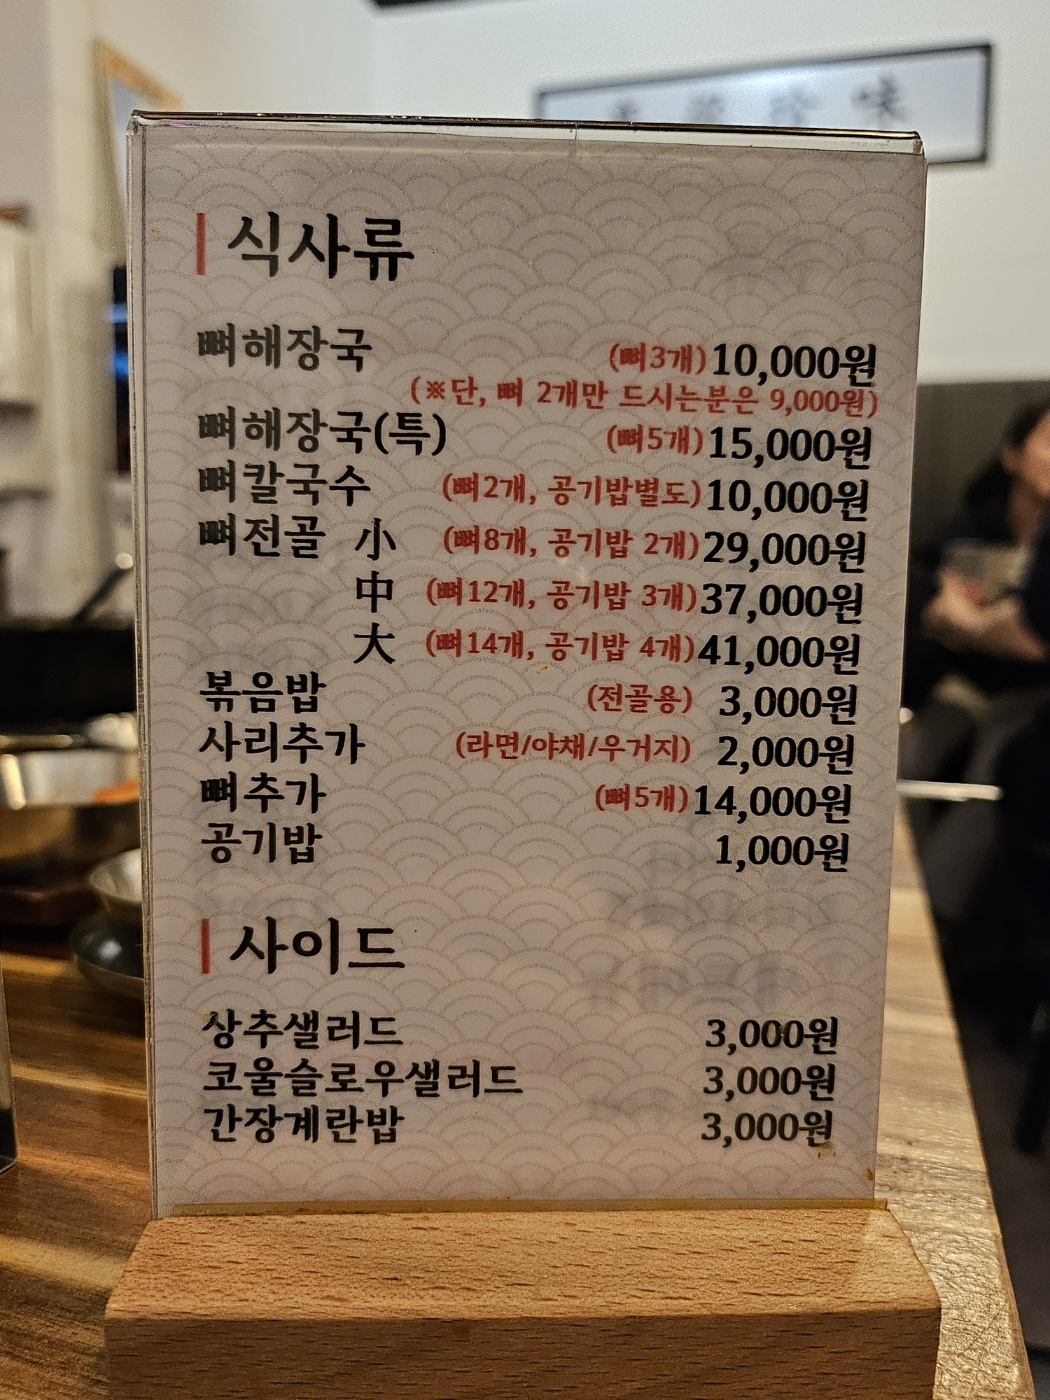 식사류
뼈해장국 (뼈3개) 10,000원
(※단, 뼈 2개만 드시는분은 9,000원)
뼈해장국(특) (뼈5개) 15,000원
뼈칼국수 (뼈2개, 공기밥별도) 10,000원
뼈전골 小 (뼈8개, 공기밥 2개) 29,000원
中 (뼈12개, 공기밥 3개) 37,000원
大 (뼈14개, 공기밥 4개) 41,000원
볶음밥 (전골용) 3,000원
사리추가 (라면/야채/우거지) 2,000원
뼈추가 (뼈5개) 14,000원
공기밥 1,000원
사이드
상추샐러드 3,000원
코울슬로우샐러드 3,000원
간장계란밥 3,000원
味